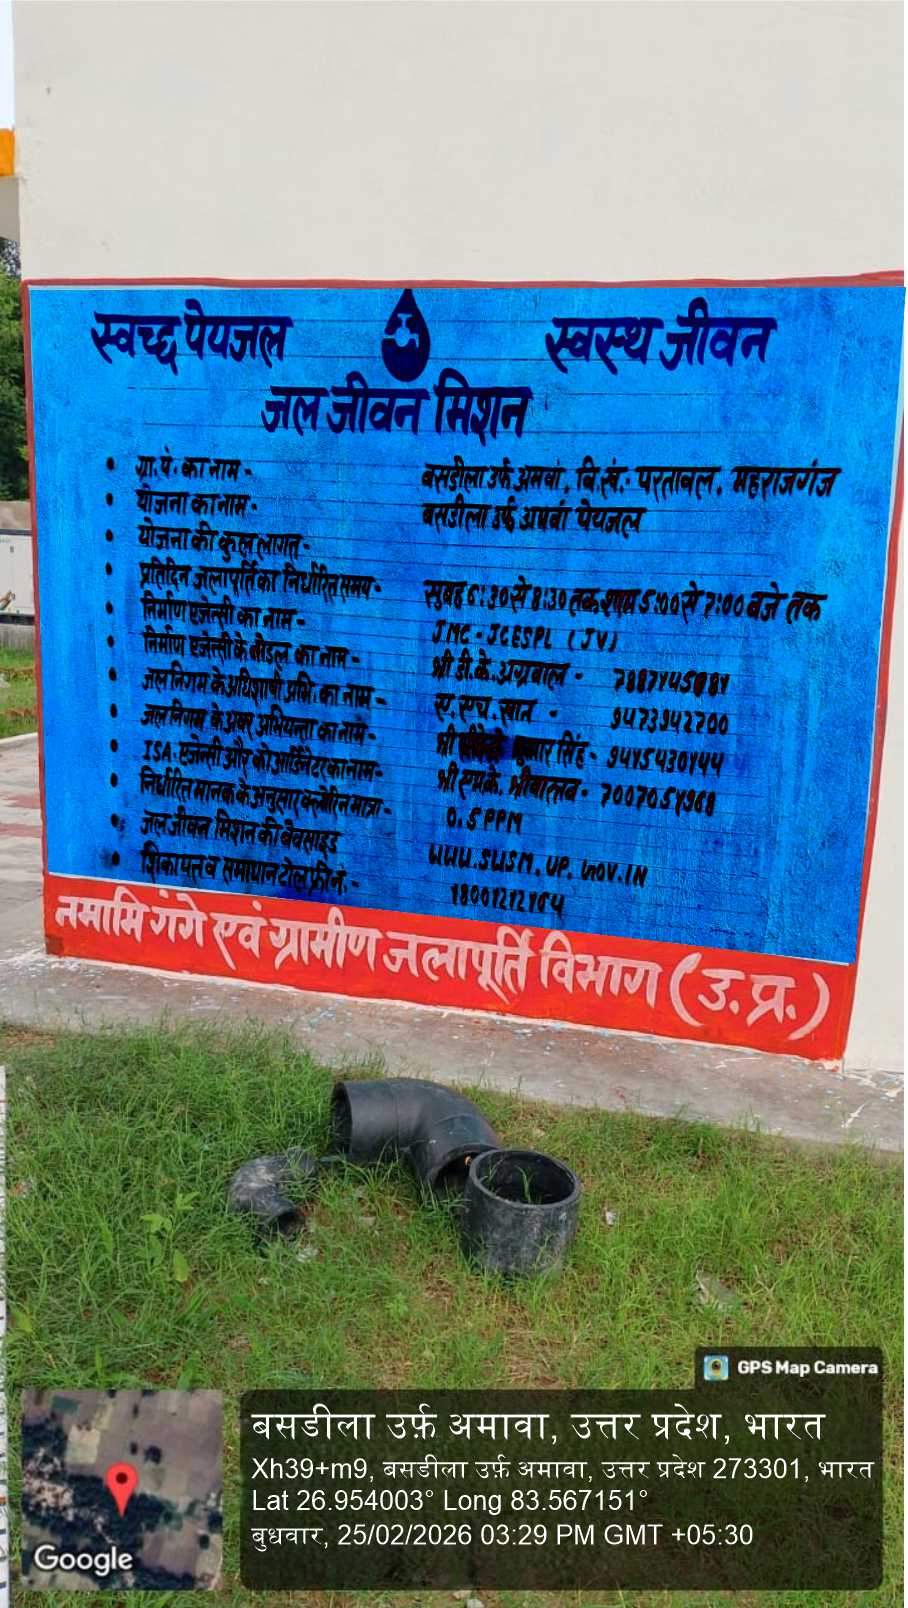 स्वच्छ पेयजल स्वस्थ जीवन
जल जीवन मिशन
• ग्रा.पं. का नाम - बसडीला उर्फ अमवां, वि.खं.- परतावल, महराजगंज
• योजना का नाम - बसडीला उर्फ अमवां पेयजल
• योजना की कुल लागत -
• प्रतिदिन जलापूर्ति का निर्धारित समय - सुबह 6:30 से 8:30 तक शाम 5:00 से 7:00 बजे तक
• निर्माण एजेन्सी का नाम - JMC - JCESPL (JV)
• निर्माण एजेन्सी के नोडल का नाम - श्री डी.के. अग्रवाल -
• जल निगम के अधिशाषी अभि. का नाम - ए.एच. खान - 9473942700
• जल निगम के अवर अभियन्ता का नाम - श्री कुमार सिंह - 9415430144
• ISA. एजेन्सी और कोआर्डिनेटर का नाम - श्री एम.के. श्रीवास्तव -
• निर्धारित मानक के अनुसार क्लोरिन मात्रा - 0.5 PPM
• जल जीवन मिशन की वेवसाइड WWW.SWSM.UP.GOV.IN
• शिकायत व समाधान टोल फ्री नं. - 18001212164
नमामि गंगे एवं ग्रामीण जलापूर्ति विभाग (उ.प्र.)
GPS Map Camera
बसडीला उर्फ़ अमावा, उत्तर प्रदेश, भारत
Xh39+m9, बसडीला उर्फ़ अमावा, उत्तर प्रदेश 273301, भारत
Lat 26.954003° Long 83.567151°
बुधवार, 25/02/2026 03:29 PM GMT +05:30
Google